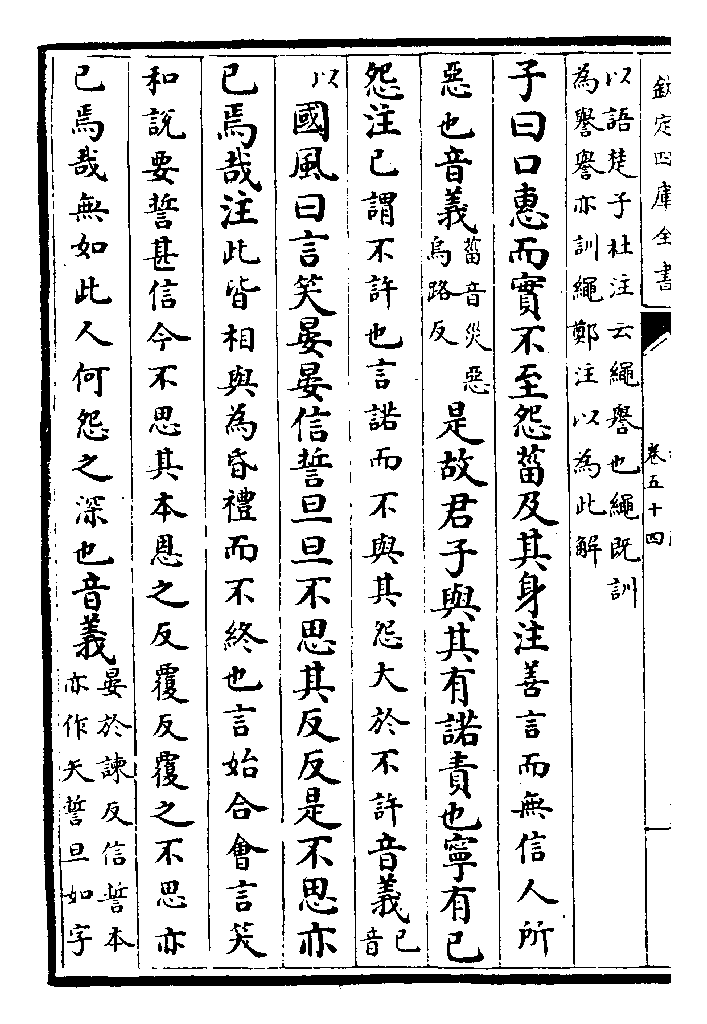 欽定四庫全書
卷五十四
以語楚子杜注云繩譽也繩既訓
為譽譽亦訓繩鄭注以為此解
子曰口惠而實不至怨菑及其身注善言而無信人所
惡也音義菑音災惡
烏路反是故君子與其有諾責也寧有已
怨注已謂不許也言諾而不與其怨大於不許音義已音
以國風曰言笑晏晏信誓旦旦不思其反反是不思亦
已焉哉注此皆相與為昏禮而不終也言始合會言笑
和說要誓甚信今不思其本恩之反覆反覆之不思亦
已焉哉無如此人何怨之深也音義晏於諫反信誓本
亦作矢誓旦如字